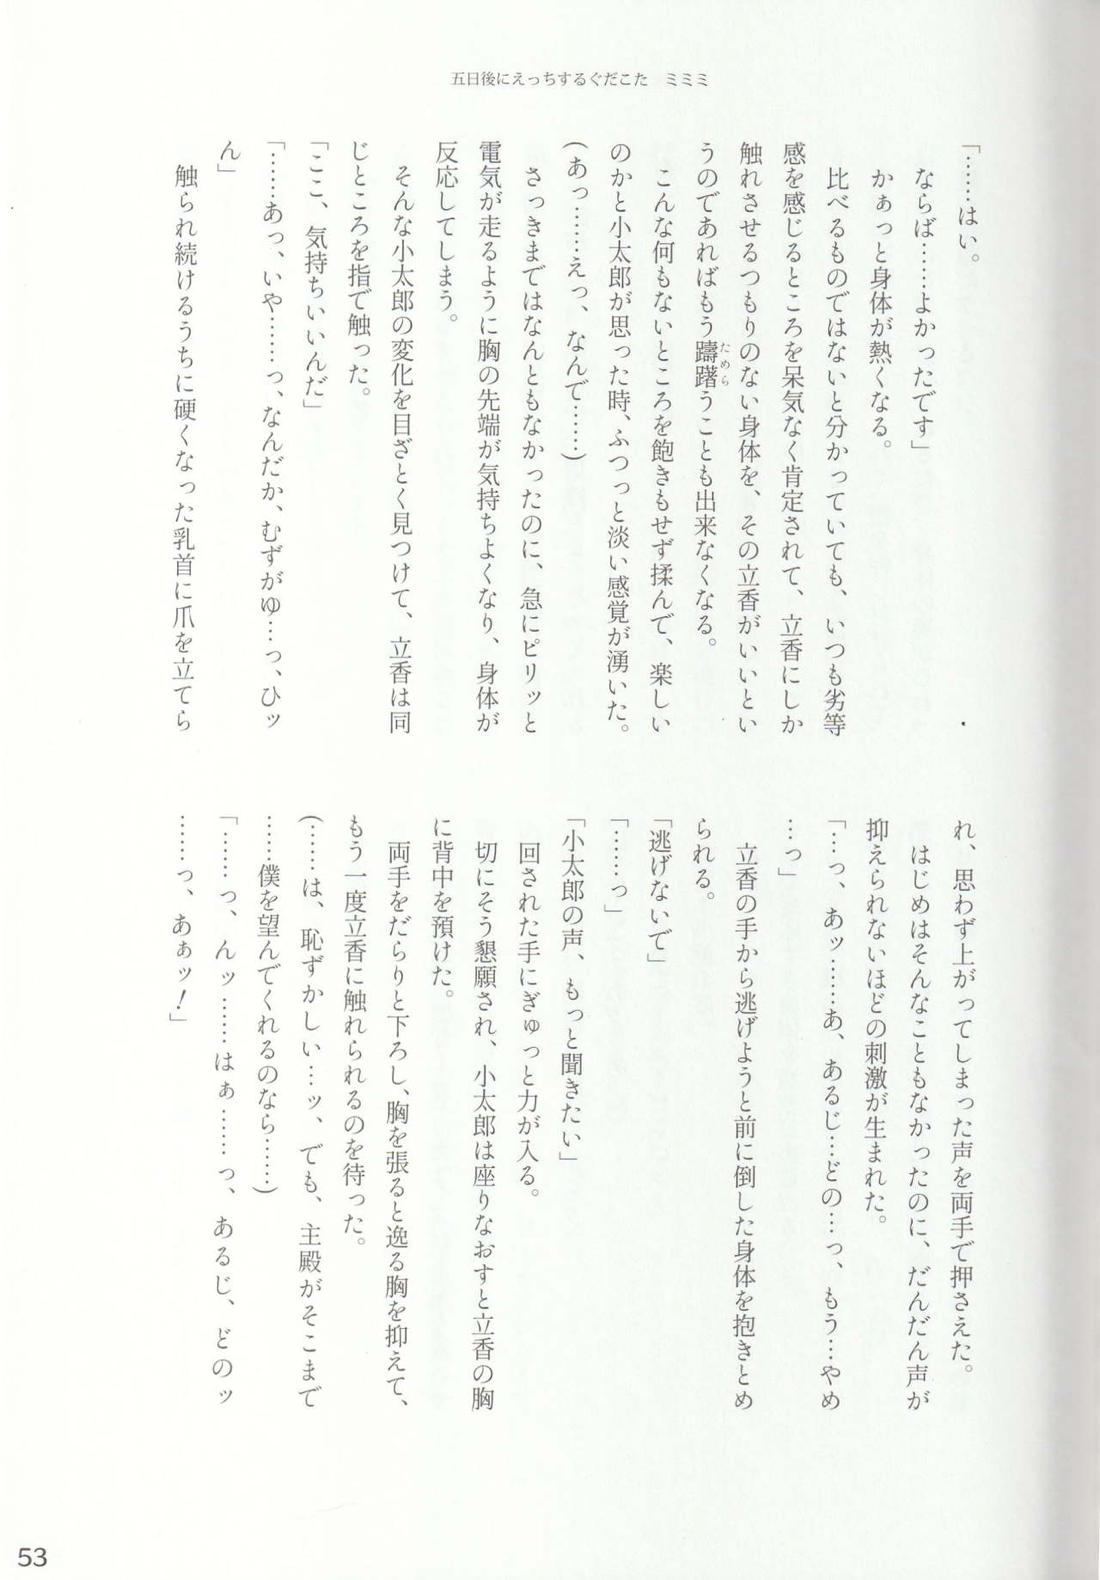 五日後にえっちするぐだこた　ミミミ
「……はい。
ならば……よかったです」
かぁっと身体が熱くなる。
比べるものではないと分かっていても、いつも劣等
感を感じるところを呆気なく肯定されて、立香にしか
触れさせるつもりのない身体を、その立香がいいとい
うのであればもう躊躇うことも出来なくなる。
ためら
こんな何もないところを飽きもせず揉んで、楽しい
のかと小太郎が思った時、ふつっと淡い感覚が湧いた。
(あっ……えっ、なんで……)
さっきまではなんともなかったのに、急にピリッと
電気が走るように胸の先端が気持ちよくなり、身体が
反応してしまう。
そんな小太郎の変化を目ざとく見つけて、立香は同
じところを指で触った。
「ここ、気持ちいいんだ」
「……あっ、いや……っ、なんだか、むずがゆ…っ、ひッ
ん」
触られ続けるうちに硬くなった乳首に爪を立てら
れ、思わず上がってしまった声を両手で押さえた。
はじめはそんなこともなかったのに、だんだん声が
抑えられないほどの刺激が生まれた。
「…っ、あッ……あ、あるじ…どの…っ、もう…やめ
…っ」
立香の手から逃げようと前に倒した身体を抱きとめ
られる。
「逃げないで」
「……っ」
「小太郎の声、もっと聞きたい」
回された手にぎゅっと力が入る。
切にそう懇願され、小太郎は座りなおすと立香の胸
に背中を預けた。
両手をだらりと下ろし、胸を張ると逸る胸を抑えて、
もう一度立香に触れられるのを待った。
(……は、恥ずかしい…ッ、でも、主殿がそこまで
……僕を望んでくれるのなら……)
「……っ、んッ……はぁ……っ、あるじ、どのッ
……っ、あぁッ！」
53